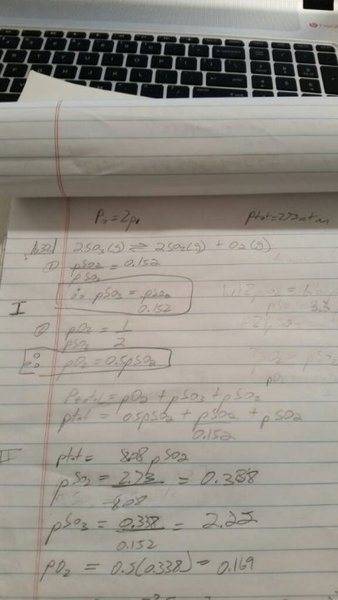 P₂ = 2p₁ ptot = 2.73 atm
2SO₃(g) ⇌ 2SO₂(g) + O₂(g)
① pSO₂/pSO₃ = 0.152
I ∴ pSO₃ = pSO₂/0.152
② pO₂/pSO₂ = 1/2
∴ pO₂ = 0.5pSO₂
Ptotal = pO₂ + pSO₃ + pSO₂
ptot = 0.5pSO₂ + pSO₂/0.152 + pSO₂
II ptot = 8.08 pSO₂
pSO₂ = 2.73/8.08 = 0.338
pSO₃ = 0.338/0.152 = 2.22
pO₂ = 0.5(0.338) = 0.169